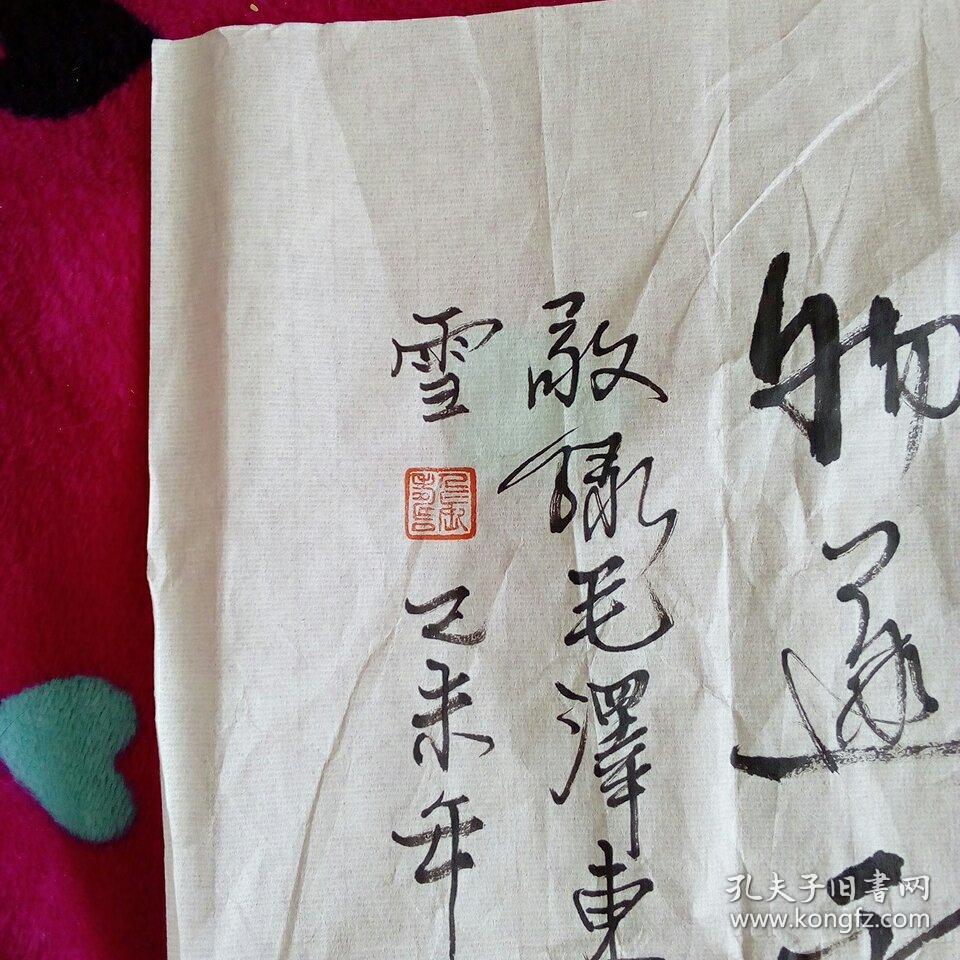 物還
敬錄毛澤東
雪
己未年
孔夫子旧書网
www.kongfz.com